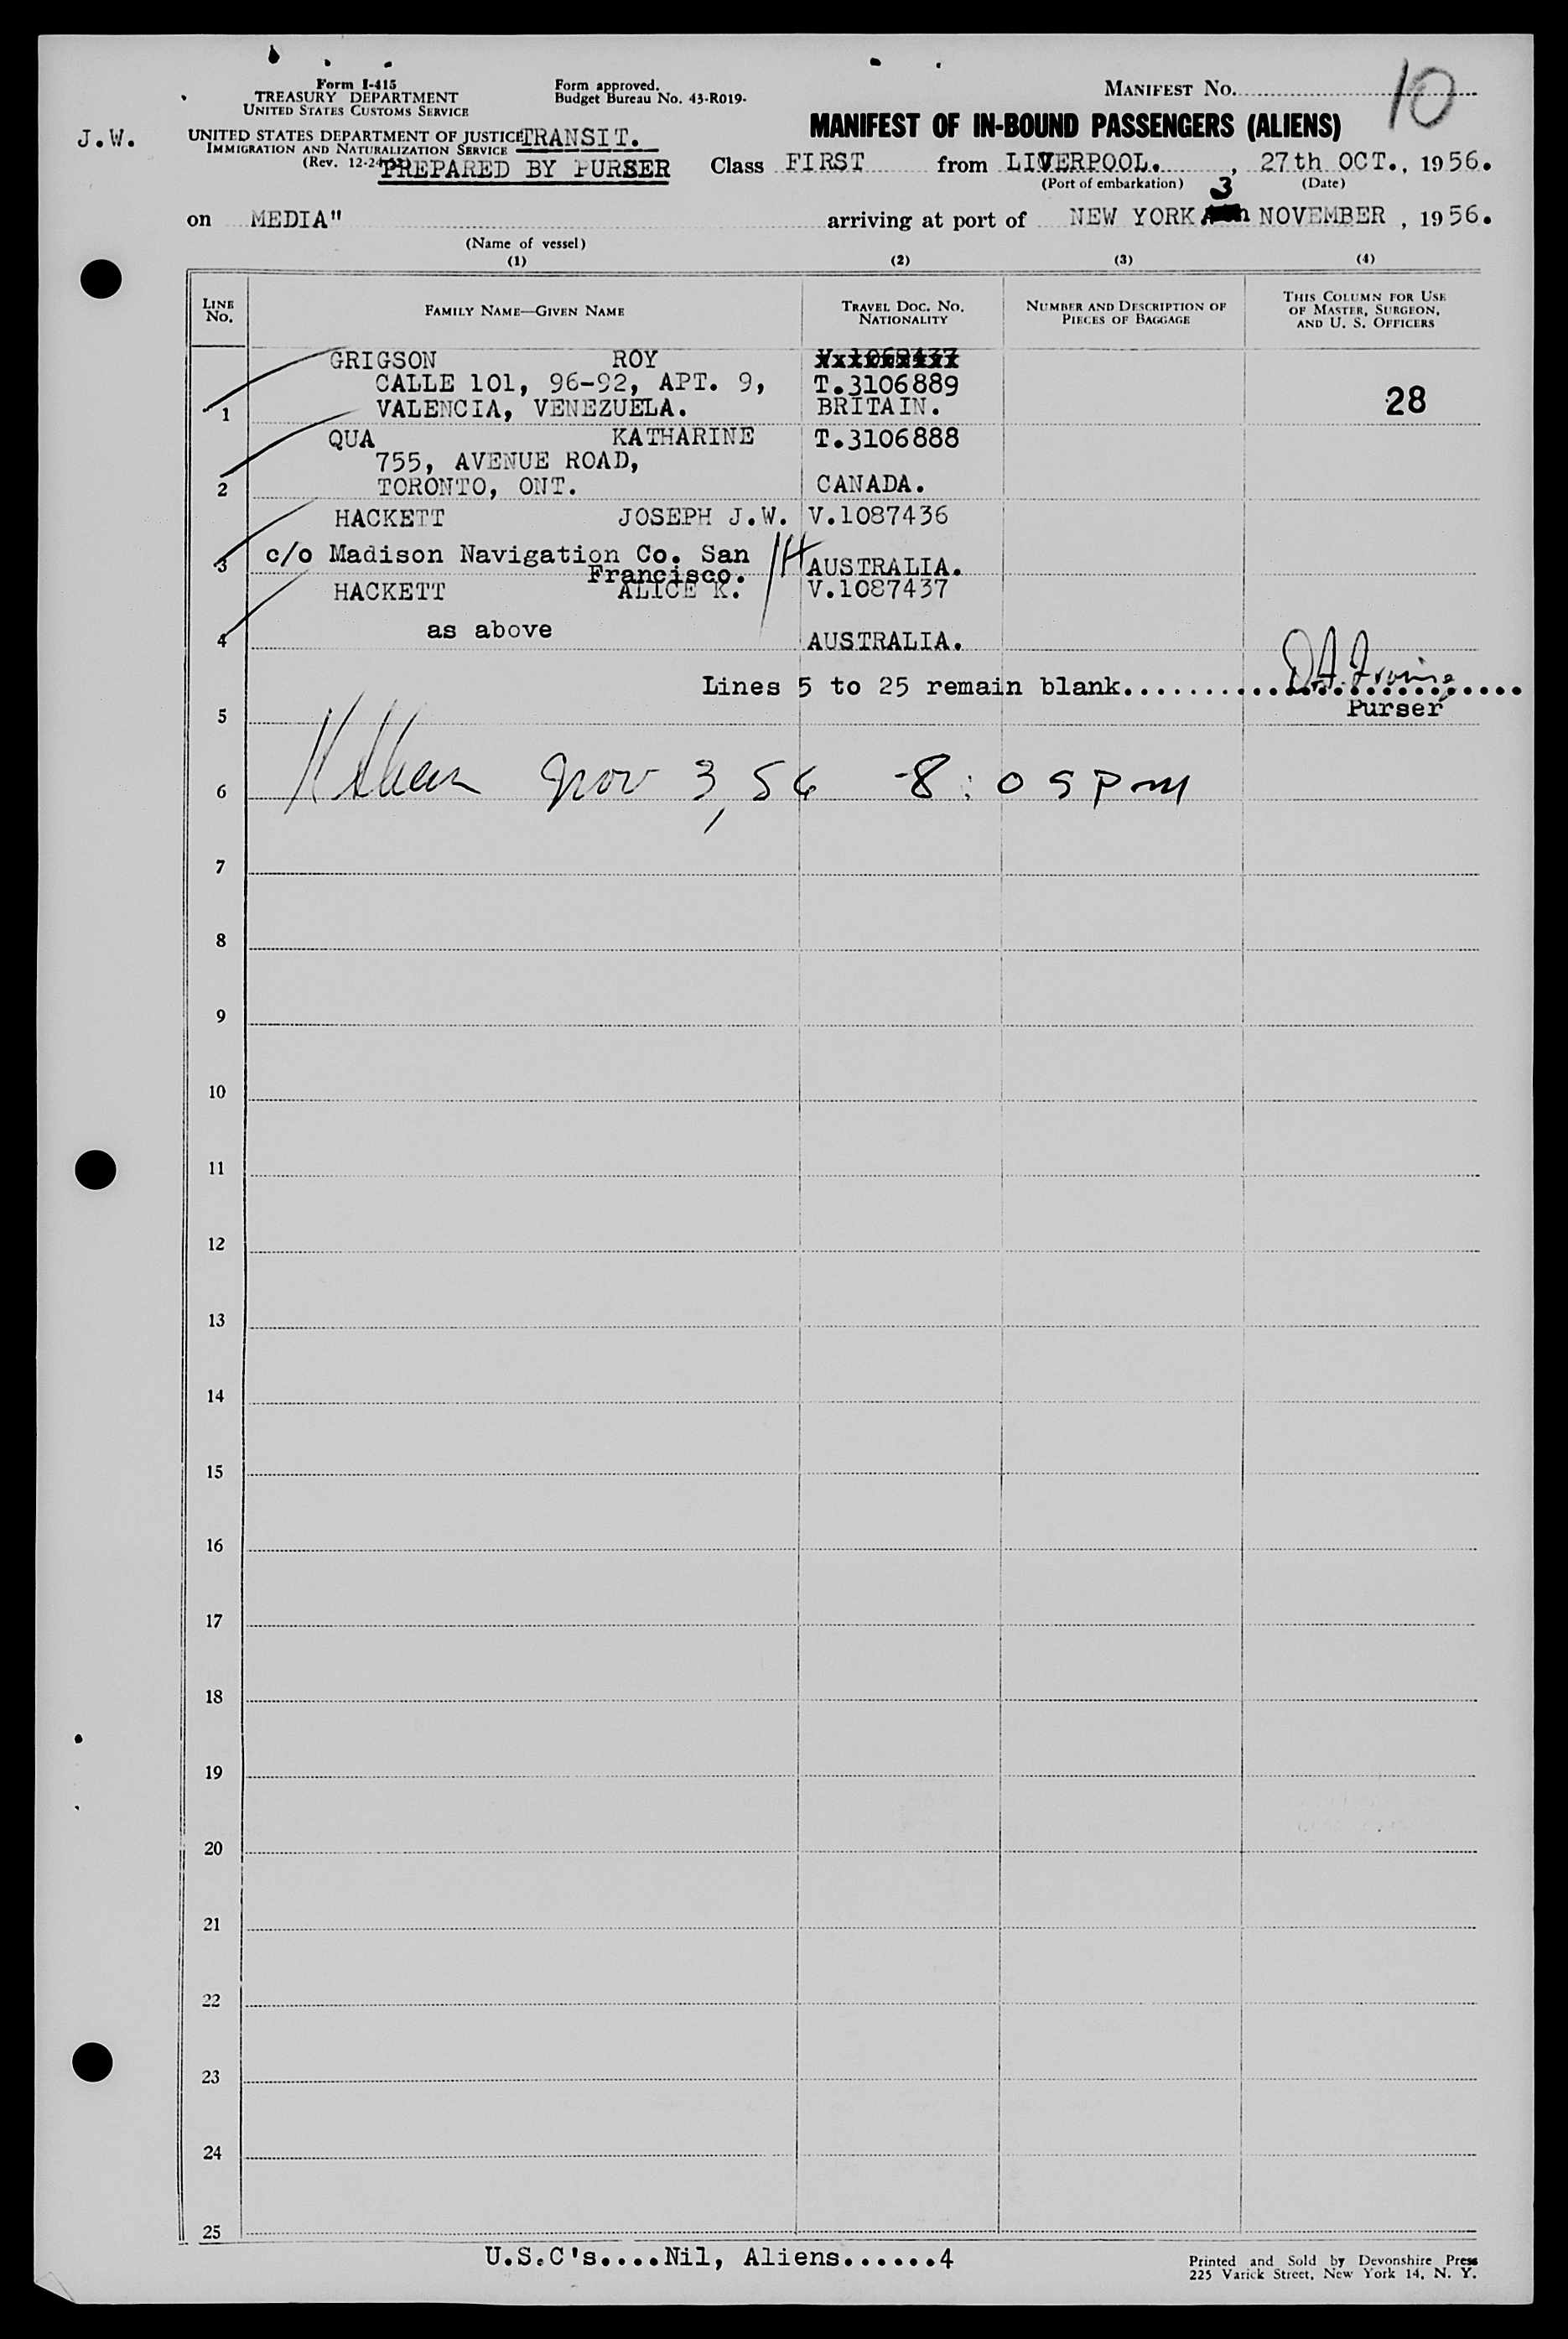 Form I-415
TREASURY DEPARTMENT
UNITED STATES CUSTOMS SERVICE
Form approved.
Budget Bureau No. 43-R019-
MANIFEST NO. 10
J.W.
UNITED STATES DEPARTMENT OF JUSTICE
IMMIGRATION AND NATURALIZATION SERVICE
TRANSIT.
(Rev. 12-24
PREPARED BY PURSER
MANIFEST OF IN-BOUND PASSENGERS (ALIENS)
Class FIRST from LIVERPOOL., 27th OCT., 1956.
(Port of embarkation) (Date)
on MEDIA" arriving at port of NEW YORK 3 NOVEMBER, 1956.
(Name of vessel)
(1) (2) (3) (4)
LINE NO.
FAMILY NAME—GIVEN NAME
TRAVEL DOC. NO.
NATIONALITY
NUMBER AND DESCRIPTION OF
PIECES OF BAGGAGE
THIS COLUMN FOR USE
OF MASTER, SURGEON,
AND U. S. OFFICERS
GRIGSON ROY
CALLE 101, 96-92, APT. 9, T.3106889
1 VALENCIA, VENEZUELA. BRITAIN. 28
QUA KATHARINE T.3106888
755, AVENUE ROAD,
2 TORONTO, ONT. CANADA.
HACKETT JOSEPH J.W. V.1087436
3 c/o Madison Navigation Co. San Francisco. AUSTRALIA.
HACKETT ALICE K. V.1087437
4 as above AUSTRALIA.
Lines 5 to 25 remain blank..............................
Purser
5
6 Nov 3, 56 - 8:05 PM
7
8
9
10
11
12
13
14
15
16
17
18
19
20
21
22
23
24
25
U.S.C's....Nil, Aliens......4
Printed and Sold by Devonshire Press
225 Varick Street, New York 14, N. Y.